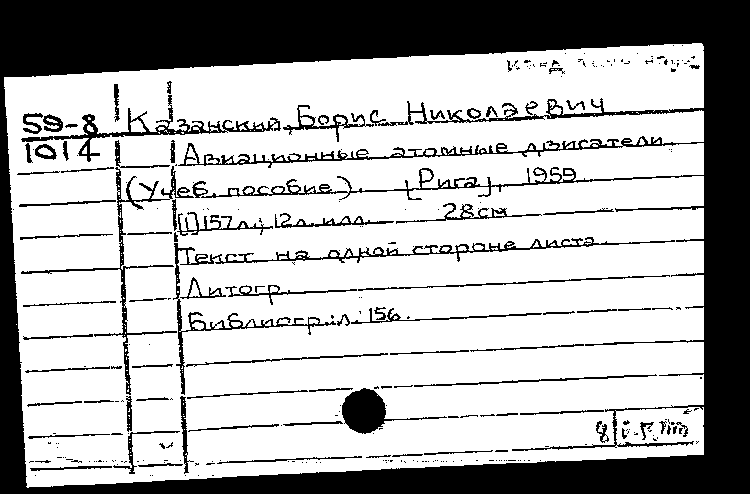 канд. техн. наук
59-8 Казанский, Борис Николаевич
1014 Авиационные атомные двигатели.
(Учеб. пособие). [Рига], 1959
[1] 157 л.; 12 л. илл. 28 см
Текст на одной стороне листа.
Литогр.
Библиогр.: л. 156.